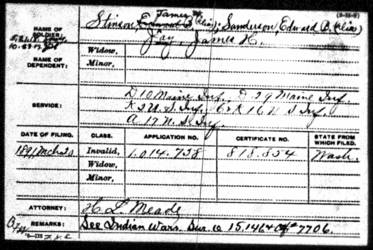 (3-32-3)
James H.
Stinson, Edward B. (alias); Sanderson, Edward B. (alias)
NAME OF SOLDIER:
Fay, James H.
NAME OF DEPENDENT:
Widow,
Minor,
SERVICE:
D 10 Maine Inf. D 29 Maine Inf.
K 2 U.S. Inf. Co K 16 U S Inf.
A 12 U.S. Inf.
DATE OF FILING.
CLASS.
APPLICATION NO.
CERTIFICATE NO.
STATE FROM WHICH FILED.
1891 Mch
Invalid,
1,014,738
818,854
Wash.
Widow,
Minor,
ATTORNEY:
H. L. Meade
REMARKS:
See Indian Wars. Sur. O. 15,146 7706.